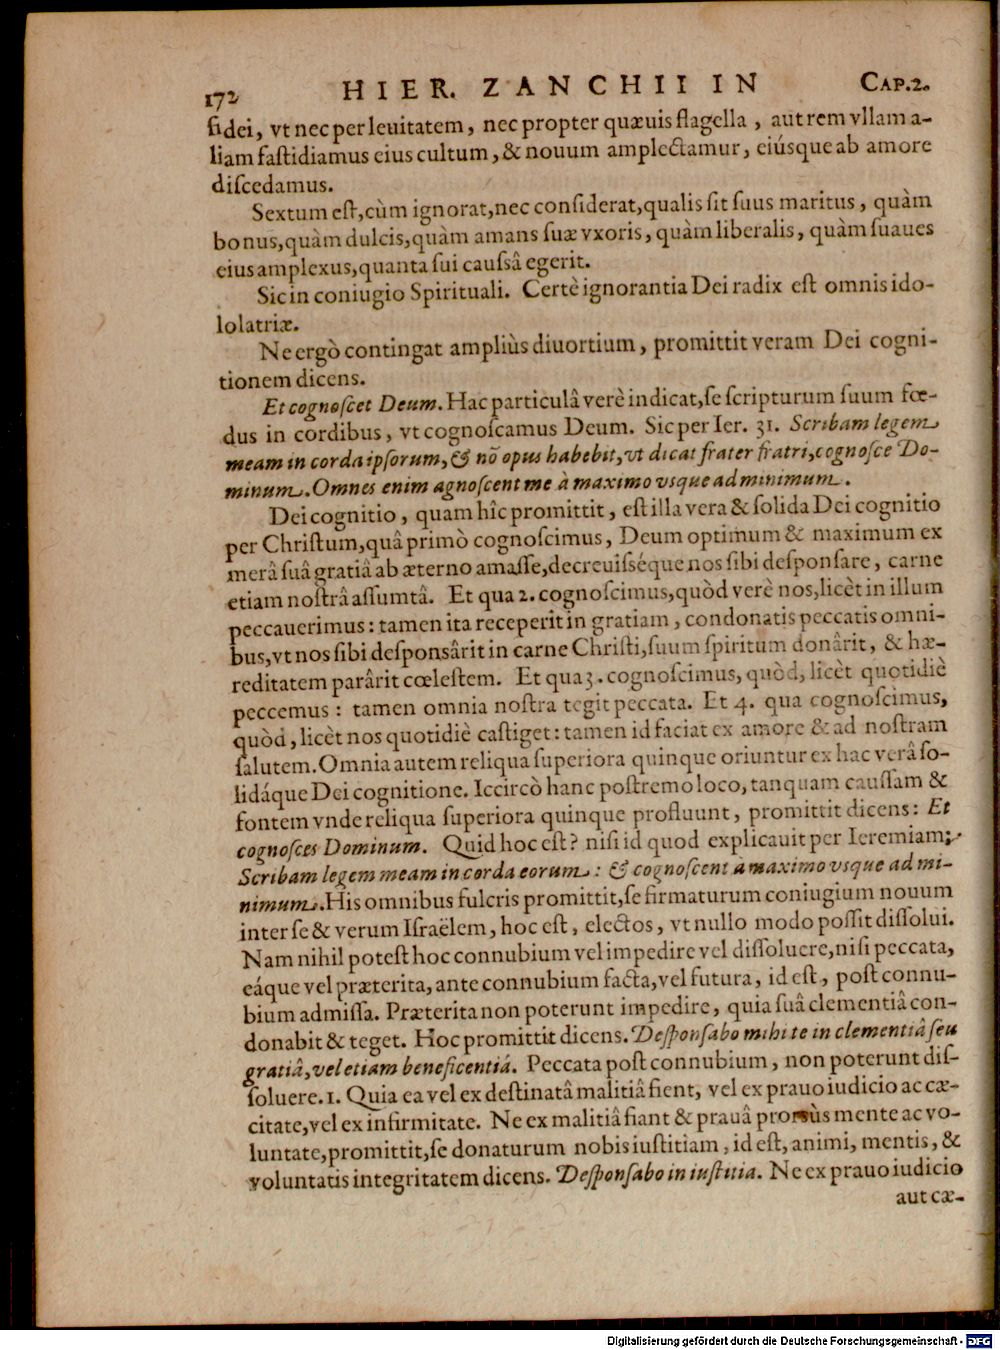 172 HIER. ZANCHII IN CAP.2.
fidei, vt nec per leuitatem, nec propter quæuis flagella, aut rem vllam a-
liam fastidiamus eius cultum, & nouum amplectamur, eiúsque ab amore
discedamus.
Sextum est, cùm ignorat, nec considerat, qualis sit suus maritus, quàm
bonus, quàm dulcis, quàm amans suæ vxoris, quàm liberalis, quàm suaues
eius amplexus, quanta sui caussâ egerit.
Sic in coniugio Spirituali. Certè ignorantia Dei radix est omnis ido-
lolatriæ.
Ne ergò contingat ampliùs diuortium, promittit veram Dei cogni-
tionem dicens.
Et cognoscet Deum. Hac particulâ verè indicat, se scripturum suum fœ-
dus in cordibus, vt cognoscamus Deum. Sic per Ier. 31. Scribam legem
meam in corda ipsorum, & nō opus habebit, vt dicat frater fratri, cognosce Do-
minum. Omnes enim agnoscent me à maximo vsque ad minimum.
Dei cognitio, quam hîc promittit, est illa vera & solida Dei cognitio
per Christum, quâ primò cognoscimus, Deum optimum & maximum ex
merâ suâ gratiâ ab æterno amasse, decreuisséque nos sibi desponsare, carne
etiam nostrâ assumtâ. Et qua 2. cognoscimus, quòd verè nos, licèt in illum
peccauerimus: tamen ita receperit in gratiam, condonatis peccatis omni-
bus, vt nos sibi desponsârit in carne Christi, suum spiritum donârit, & hæ-
reditatem parârit cœlestem. Et qua 3. cognoscimus, quòd, licèt quotidiè
peccemus: tamen omnia nostra tegit peccata. Et 4. qua cognoscimus,
quòd, licèt nos quotidiè castiget: tamen id faciat ex amore & ad nostram
salutem. Omnia autem reliqua superiora quinque oriuntur ex hac verâ so-
lidáque Dei cognitione. Iccircò hanc postremo loco, tanquam caussam &
fontem vnde reliqua superiora quinque profluunt, promittit dicens: Et
cognosces Dominum. Quid hoc est? nisi id quod explicauit per Ieremiam;
Scribam legem meam in corda eorum: & cognoscent a maximo vsque ad mi-
nimum. His omnibus fulcris promittit, se firmaturum coniugium nouum
inter se & verum Israëlem, hoc est, electos, vt nullo modo possit dissolui.
Nam nihil potest hoc connubium vel impedire vel dissoluere, nisi peccata,
eáque vel præterita, ante connubium facta, vel futura, id est, post connu-
bium admissa. Præterita non poterunt impedire, quia suâ clementiâ con-
donabit & teget. Hoc promittit dicens. Desponsabo mihi te in clementiâ seu
gratiâ, vel etiam beneficentiâ. Peccata post connubium, non poterunt dis-
soluere. 1. Quia ea vel ex destinatâ malitiâ fient, vel ex prauo iudicio ac cæ-
citate, vel ex infirmitate. Ne ex malitiâ fiant & prauâ prorsùs mente ac vo-
luntate, promittit, se donaturum nobis iustitiam, id est, animi, mentis, &
voluntatis integritatem dicens. Desponsabo in iustitia. Ne ex prauo iudicio
aut cæ-
Digitalisierung gefördert durch die Deutsche Forschungsgemeinschaft - DFG